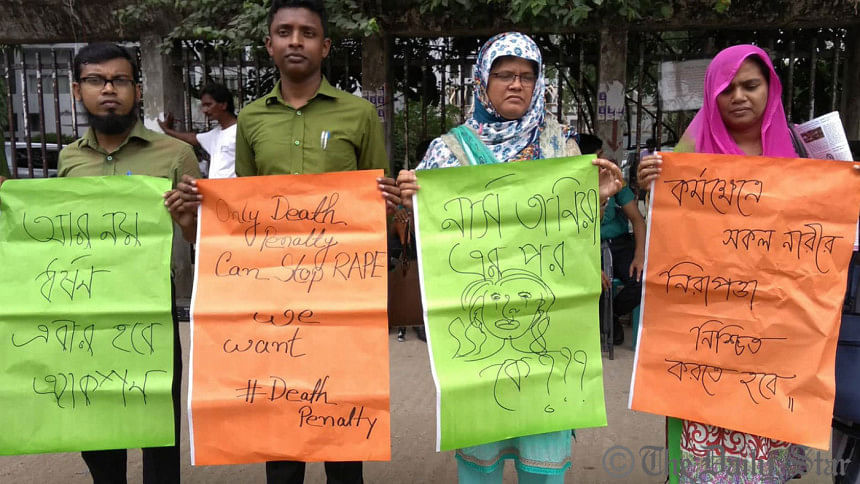 আর নয়
ধর্ষন
এবার হবে
অ্যাকশন
Only Death
Penalty
Can Stop RAPE
we
want
#Death
Penalty
নার্স তানিয়া
এর পর
কে???
কর্মক্ষেত্রে
সকল নারীর
নিরাপত্তা
নিশ্চিত
করতে হবে॥
© The Daily Star